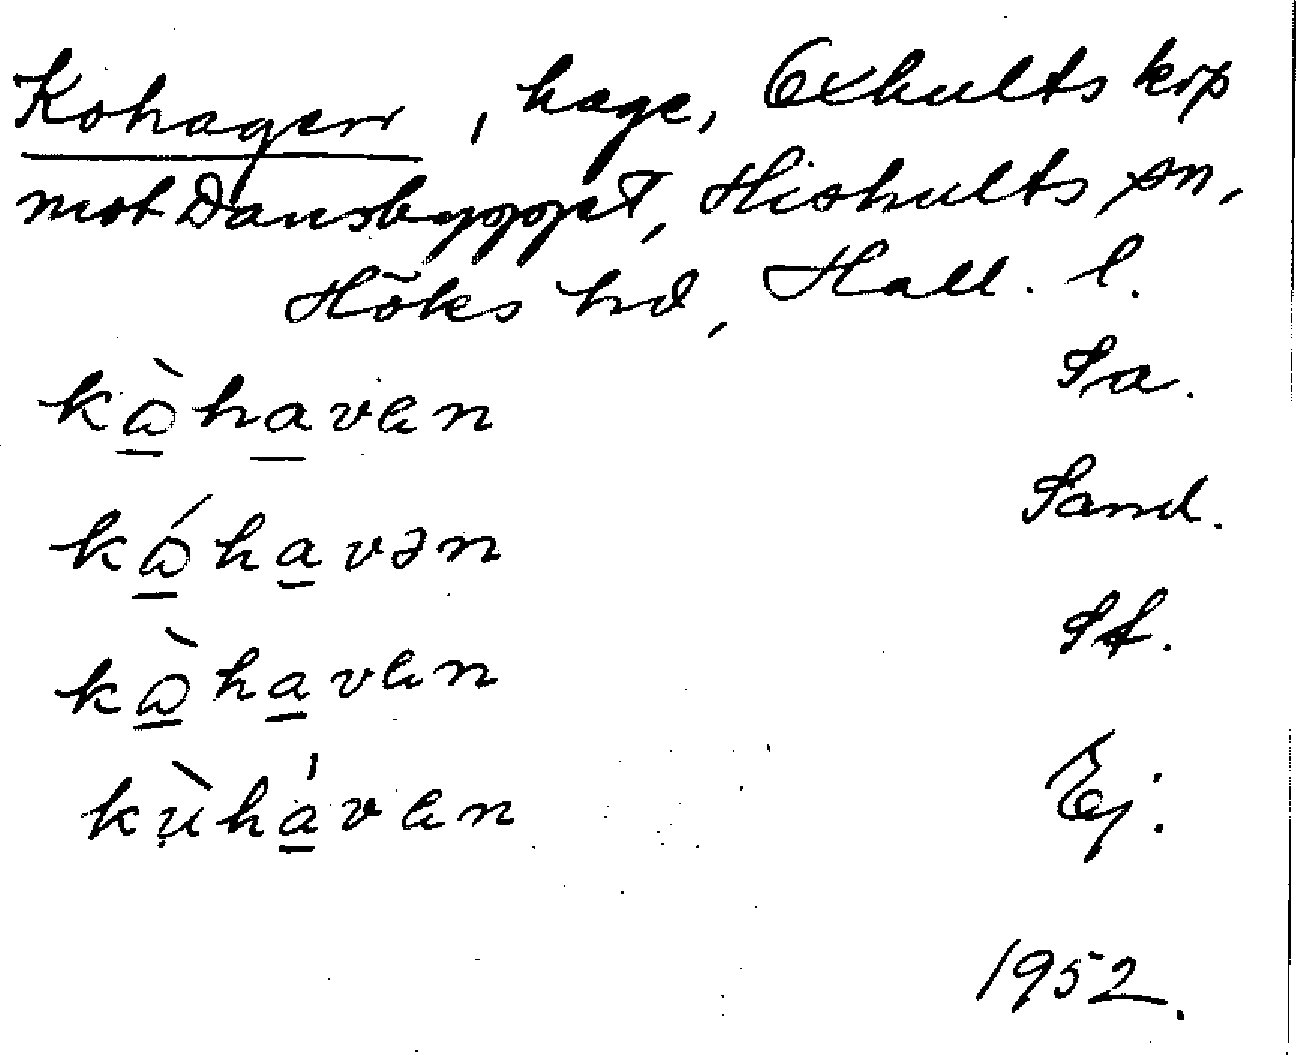 Kohagen, hage, Oxhults krp
mot Dansbygget, Hishults sn,
Höks hd, Hall. l.
kàhaven Sa.
káhavən Sand.
kàhaven St.
kùháven Ej.
1952.